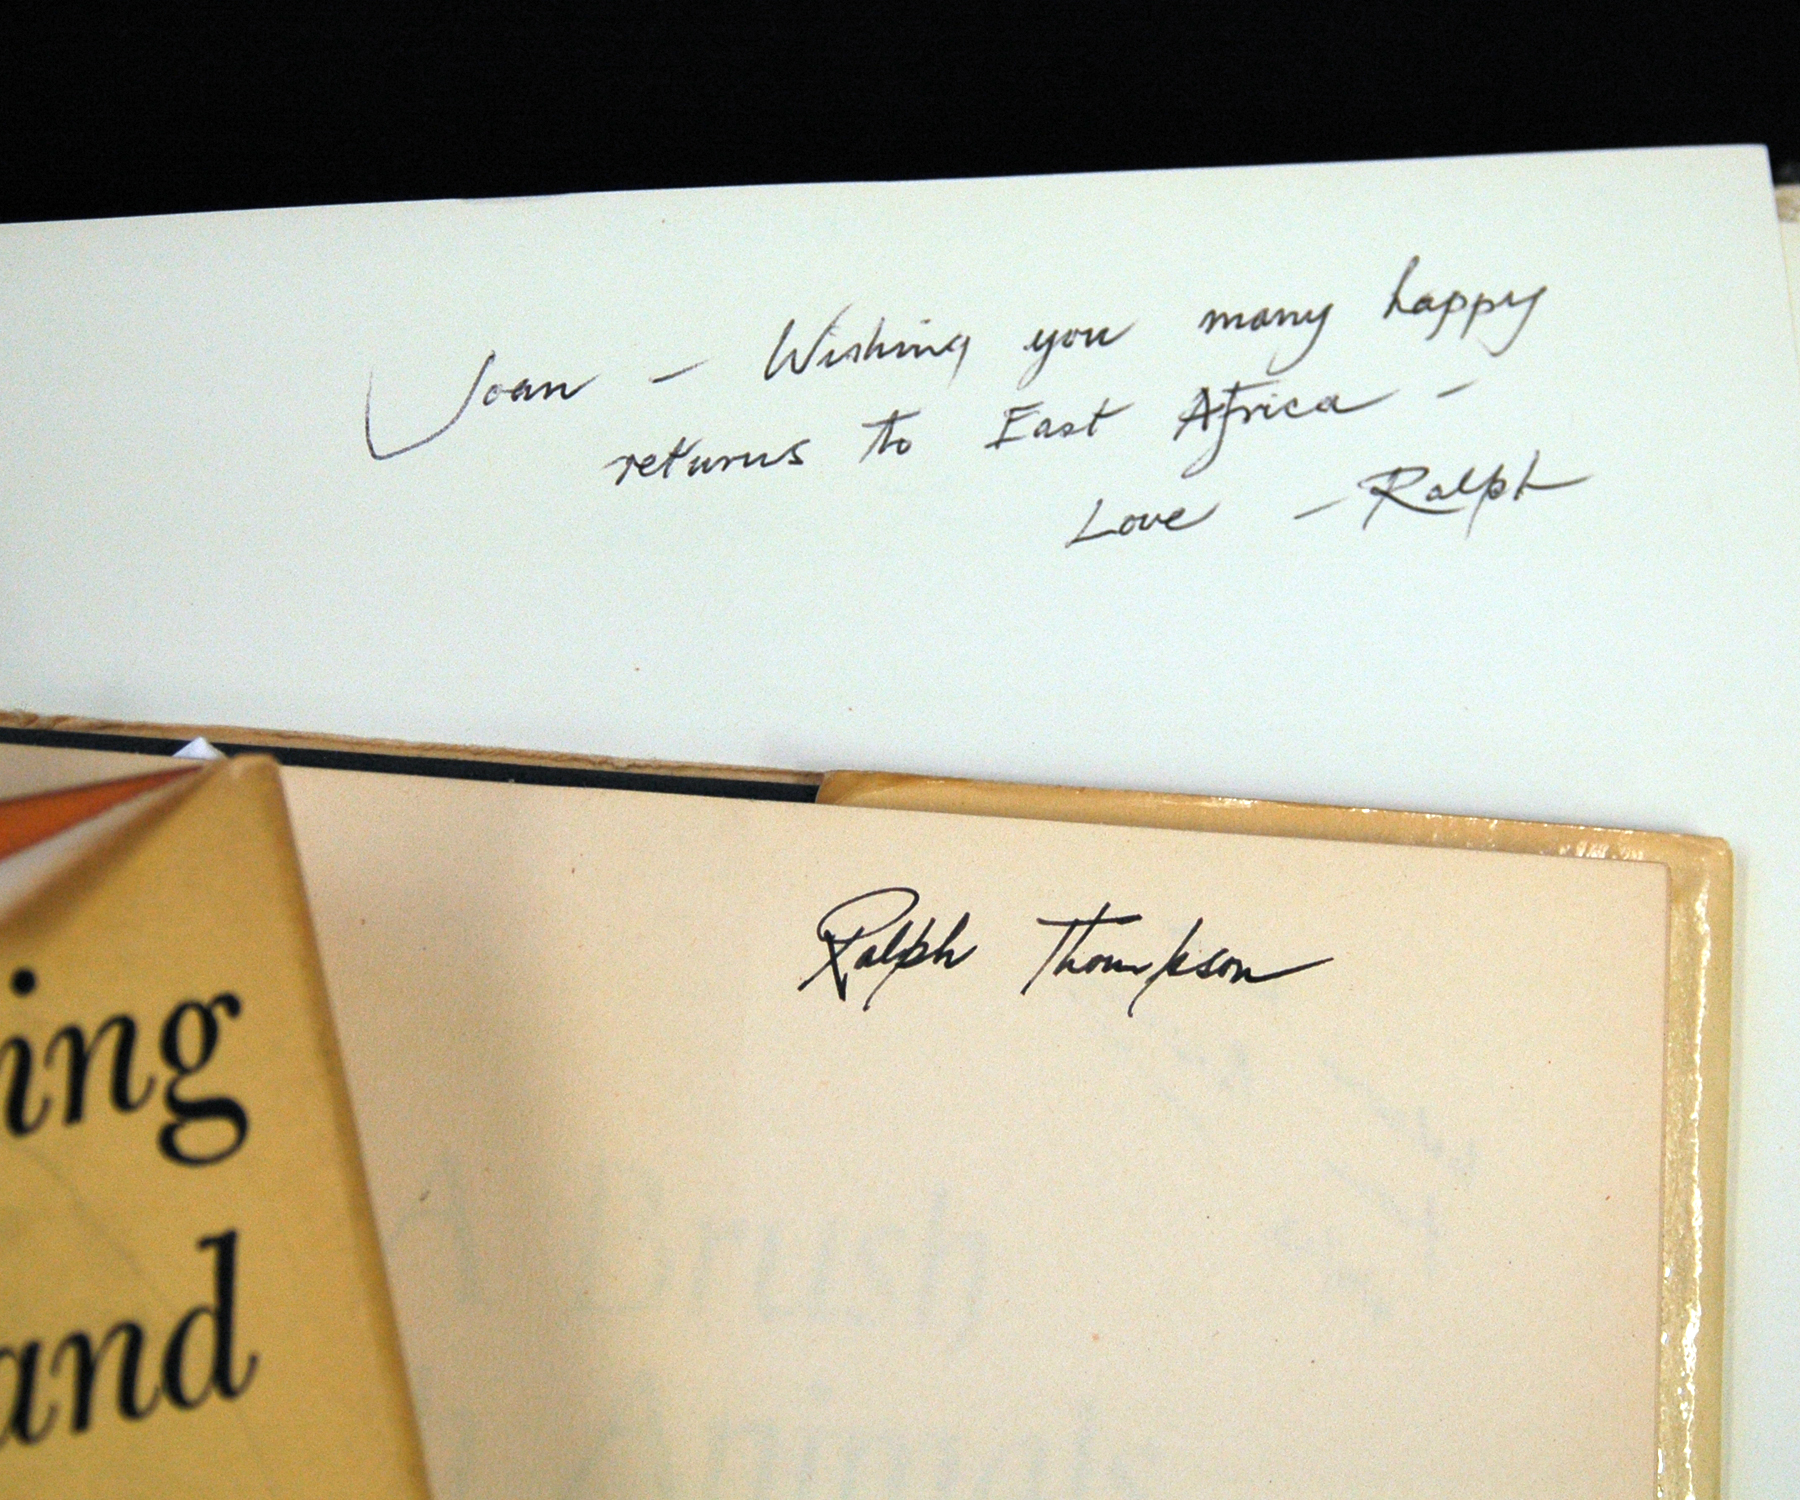 Joan – Wishing you many happy
returns to East Africa –
Love – Ralph
Ralph Thompson
ing
and